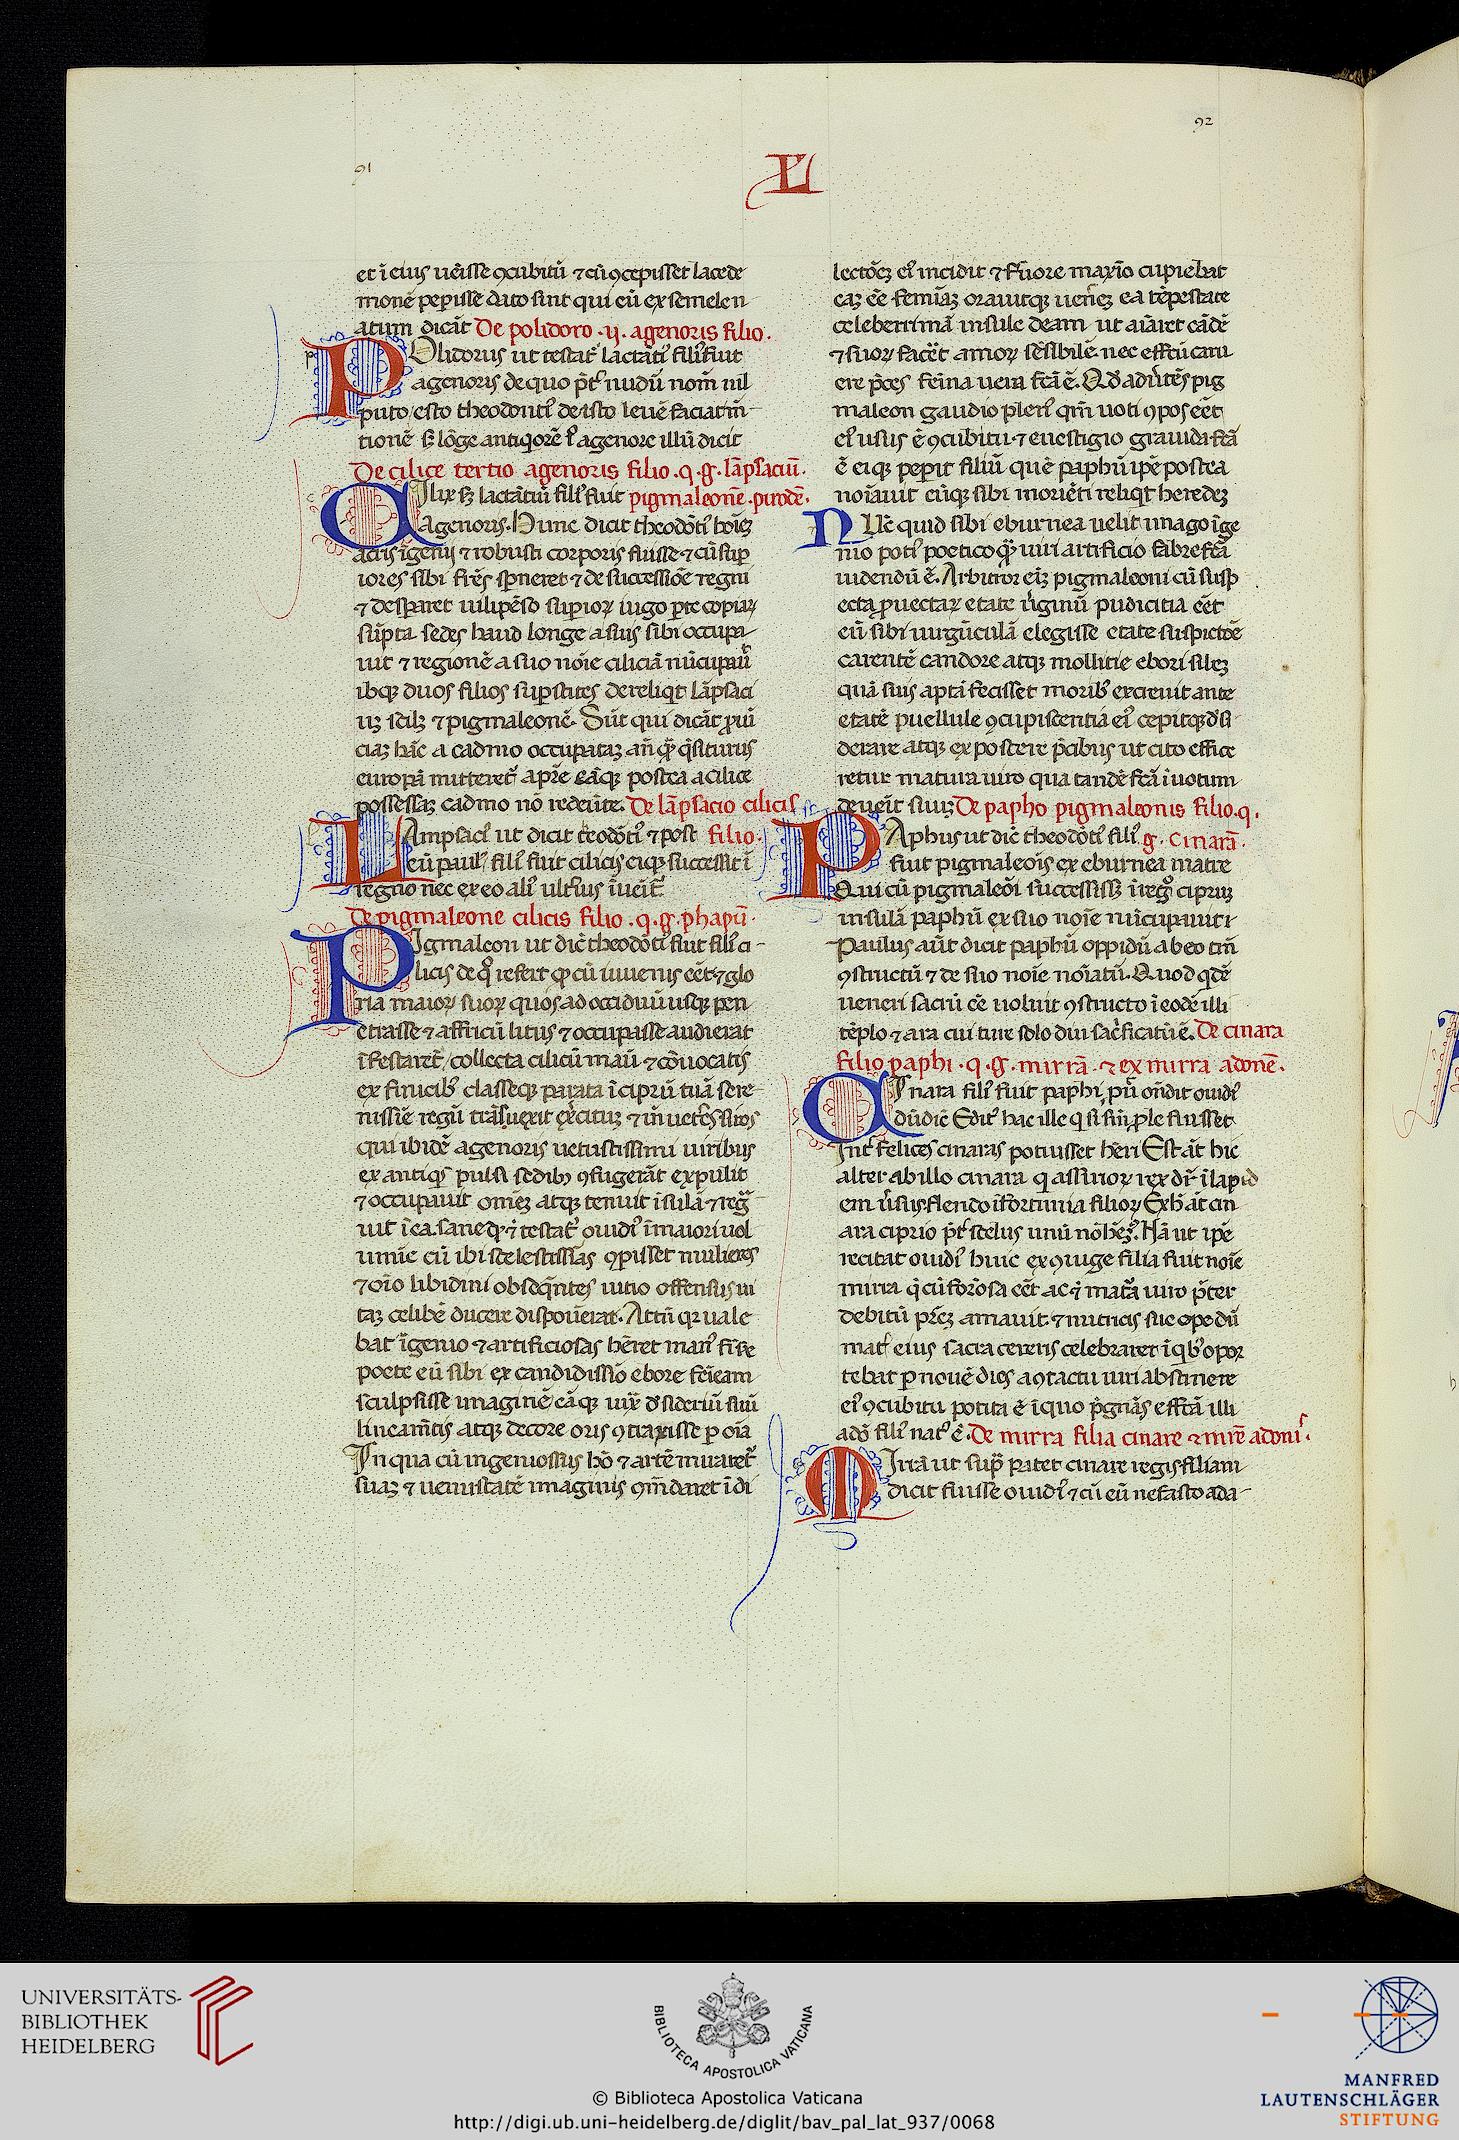 92
91
L
et ĩ eius uẽisse ꝯcubitũ ⁊ cũ ꝯcepisset lacede
monẽ peꝑisse dato sint qui eũ ex semele n
atum dicãt De polidoro .ij. agenoris filio.
POlidorus ut testat᷑ lactãtiꝰ filiꝰ fuit
agenoris de quo p̃t᷑ nudũ nom̃ nil
puto esto theodontiꝰ de isto leuẽ faciat m̃
tionẽ sꝫ lõge antiqorẽ agenore illũ dicit
De cilice tertio agenoris filio .q.g. lãpsaciũ.
CIlix sꝫ lactãtiũ filiꝰ fuit pigmaleonẽ . pirodẽ.
agenoris. Hunc dicit theodõtiꝰ hoĩeꝫ
acris ĩgenij ⁊ robusti corporis fuisse ⁊ cũ suꝑ
iores sibi fr̃es sꝑneret ⁊ de successiõe regni
⁊ desꝑaret uilipẽso suꝑioꝝ iugo ꝑte copiaꝝ
sũpta sedes haud longe a suis sibi occupa
uit ⁊ regionẽ a suo noĩe ciliciã nũcupauit
ibqꝫ duos filios suꝑstites dereliqt lãpsaci
uꝫ scilꝫ ⁊ pigmaleonẽ. Sũt qui dicãt ꝓuĩ
ciaꝫ hãc a cadmo occupataꝫ añ q̃ȝ q̃siturus
europã mitteret᷑ a pr̃e eãqꝫ postea a cilice
possessaꝫ cadmo nõ redeũte. De lãpsacio cilicis
LAmpsaciꝰ ut dicit teodõtiꝰ ⁊ post filio.
eũ paulꝰ filiꝰ fuit cilicis eiqꝫ successit ĩ
regno nec ex eo aliꝰ ulterius ĩueĩt᷑
De pigmaleone cilicis filio .q.g. phapũ.
PIgmaleon ut dic̃ theodõtiꝰ fuit filiꝰ ci
licis de q̊ refert ꝙ cũ iuuenis eẽt ⁊ glo
ria maioꝝ suoꝝ quos ad occiduũ usqꝫ pen
etrasse ⁊ affricũ litus ⁊ occupasse audierat
ĩfestaret᷑ collecta cilicũ manũ ⁊ cõuocatis
ex finicibꝰ classeqꝫ parata ĩ cipriũ tuã sere
nissiẽ regũ trãsuexit exercituꝫ ⁊ ĩ ueteres siros
qui ibidẽ agenoris uetustissimi uiribus
ex antiqs pulsi sedibꝰ ꝯfugerãt expulit
⁊ occupauit omẽꝫ atqꝫ tenuit ĩsulã ⁊ reg̃
uit ĩ ea. sane testat᷑ ouidiꝰ ĩ maiori uol
umĩe cũ ibi scelestissĩas ꝯꝑisset mulieres
⁊ oĩo libidini obseq̃ntes uitio offensus ui
taꝫ celibẽ ducere disposuerat. Attñ qꝛ uale
bat ĩgenio ⁊ artificiosas hẽret manꝰ
poete eũ sibi ex candidissĩo ebore feĩeam
sculpsisse imaginẽ eãqꝫ iux̃ desideriũ suũ
lineam̃tis atqꝫ decore oris ꝯtraxisse ꝑ oĩa
In qua cũ ingeniosus hõ ⁊ artẽ miraret᷑
suaꝫ ⁊ uenustatẽ imaginis ꝯm̃daret ĩ di
lectõeꝫ eiꝰ incidit ⁊ fũore maxĩo cupiebat
eaꝫ eẽ femĩaꝫ orauitqꝫ uenereꝫ ea tẽpestate
celeberrimã insule deam ut aĩaret cãdẽ
⁊ suoꝝ facẽt amoꝝ sẽsibilẽ. nec effctũ caru
ere p̃ces femina uera fcã ẽ. Qd aduertẽs pig
maleon gaudio plenꝰ qm̃ uoti ꝯpos eẽt
eiꝰ usus ẽ ꝯcubitu ⁊ euestigio grauida fcã
ẽ eiqꝫ peꝑit filiũ quẽ paphũ ipẽ postea
noĩauit eũqꝫ sibi moriẽti reliqt heredeꝫ
NUc̃ quid sibi eburnea uelit imago ĩge
nio potiꝰ poetico q̃ȝ uiri artificio fabrefcã
uidendũ ẽ. Arbitror eĩꝫ pigmaleoni cũ susp
ecta ꝓuectaꝝ etate uirginũ pudicitia eẽt
eũ sibi uirgũculã elegisse etate suspictõe
carentẽ candore atqꝫ mollitie ebori sileꝫ
quã suis aptã fecisset moribꝰ excreuit ante
etatẽ puellule ꝯcupiscentiã eiꝰ cepitqꝫ desi
derare atqꝫ exposcere p̃cibus ut cito effice
retur matura uiro qua tandẽ fcã ĩ uotum
deueĩt suuꝫ De papho pigmaleonis filio .q.
PAphus ut dic̃ theodõtiꝰ filiꝰ g. cinarã.
fuit pigmaleoĩs ex eburnea matre
Qui cũ pigmaleõi successisꝫ ĩ regͦ cipriuꝫ
insulã paphũ ex suo noĩe nũcupauit
Paulus aũt dicit paphũ oppidũ ab eo tm̃
ꝯstructũ ⁊ de suo noĩe noĩatũ. Quod qdẽ
ueneri sacrũ eẽ uoluit ꝯstructo ĩ eodẽ illi
tẽplo ⁊ ara cui ture solo diu sac̃ficatũ ẽ. De cinara
filio paphi .q.g. mirrã . ⁊ ex mirra adonẽ.
CInara filiꝰ fuit paphi, pũ on̄dit ouidiꝰ
dũ dic̃ Editꝰ hac ille q si sin̄ ꝓle fuisset
Int̃ felices cinaras potuisset hẽri Est ãt hic
alter ab illo cinara q assirioꝝ rex dr̃ ĩ lapid
em uersus flendo ĩfortunia filioꝝ Exh ãt cin
ara ciprio p̃t᷑ scelus unũ nõ heꝫ. Nã ut ipẽ
recitat ouidiꝰ huic ex ꝯiuge filia fuit noĩe
mirra q̃ cũ formosa eẽt ac matura uiro p̃ter
debitũ pr̃eꝫ amauit ⁊ nutricis sue ope dũ
mat̃ eius sacra cereris celebraret ĩ qbꝰ opor
tebat ꝑ nouẽ dies a ꝯtactu uiri abstinere
eiꝰ ꝯcubitu potita ẽ ĩ quo p̃gnãs effctã illi
adõ filiꝰ natꝰ ẽ. De mirra filia cinare ⁊ mr̃e adonis.
MIrra ut supͣ patet cinare regis filiam
dicit fuisse ouidiꝰ ⁊ cũ eũ nefasto ada
UNIVERSITÄTS-
BIBLIOTHEK
HEIDELBERG
BIBLIOTECA APOSTOLICA VATICANA
© Biblioteca Apostolica Vaticana
http://digi.ub.uni-heidelberg.de/diglit/bav_pal_lat_937/0068
MANFRED
LAUTENSCHLÄGER
STIFTUNG